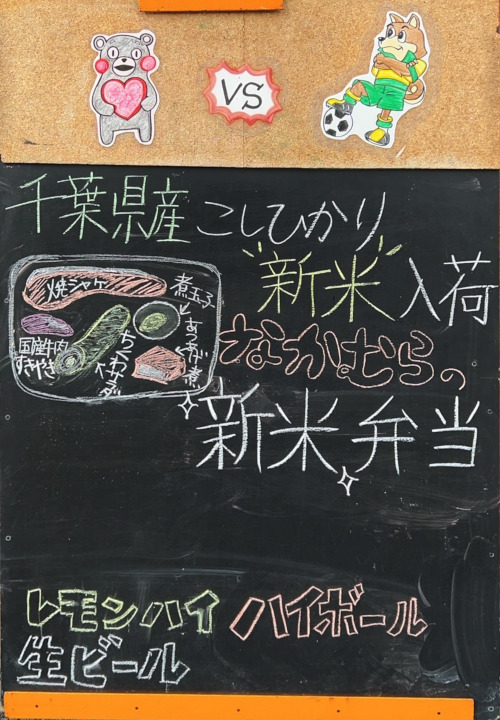 VS
千葉県産 こしひかり
新米 入荷
なかむらの
新米弁当
焼シャケ
煮玉子
あつあげ煮
ちくわ煮
国産牛肉
すきやき
レモンハイ ハイボール
生ビール